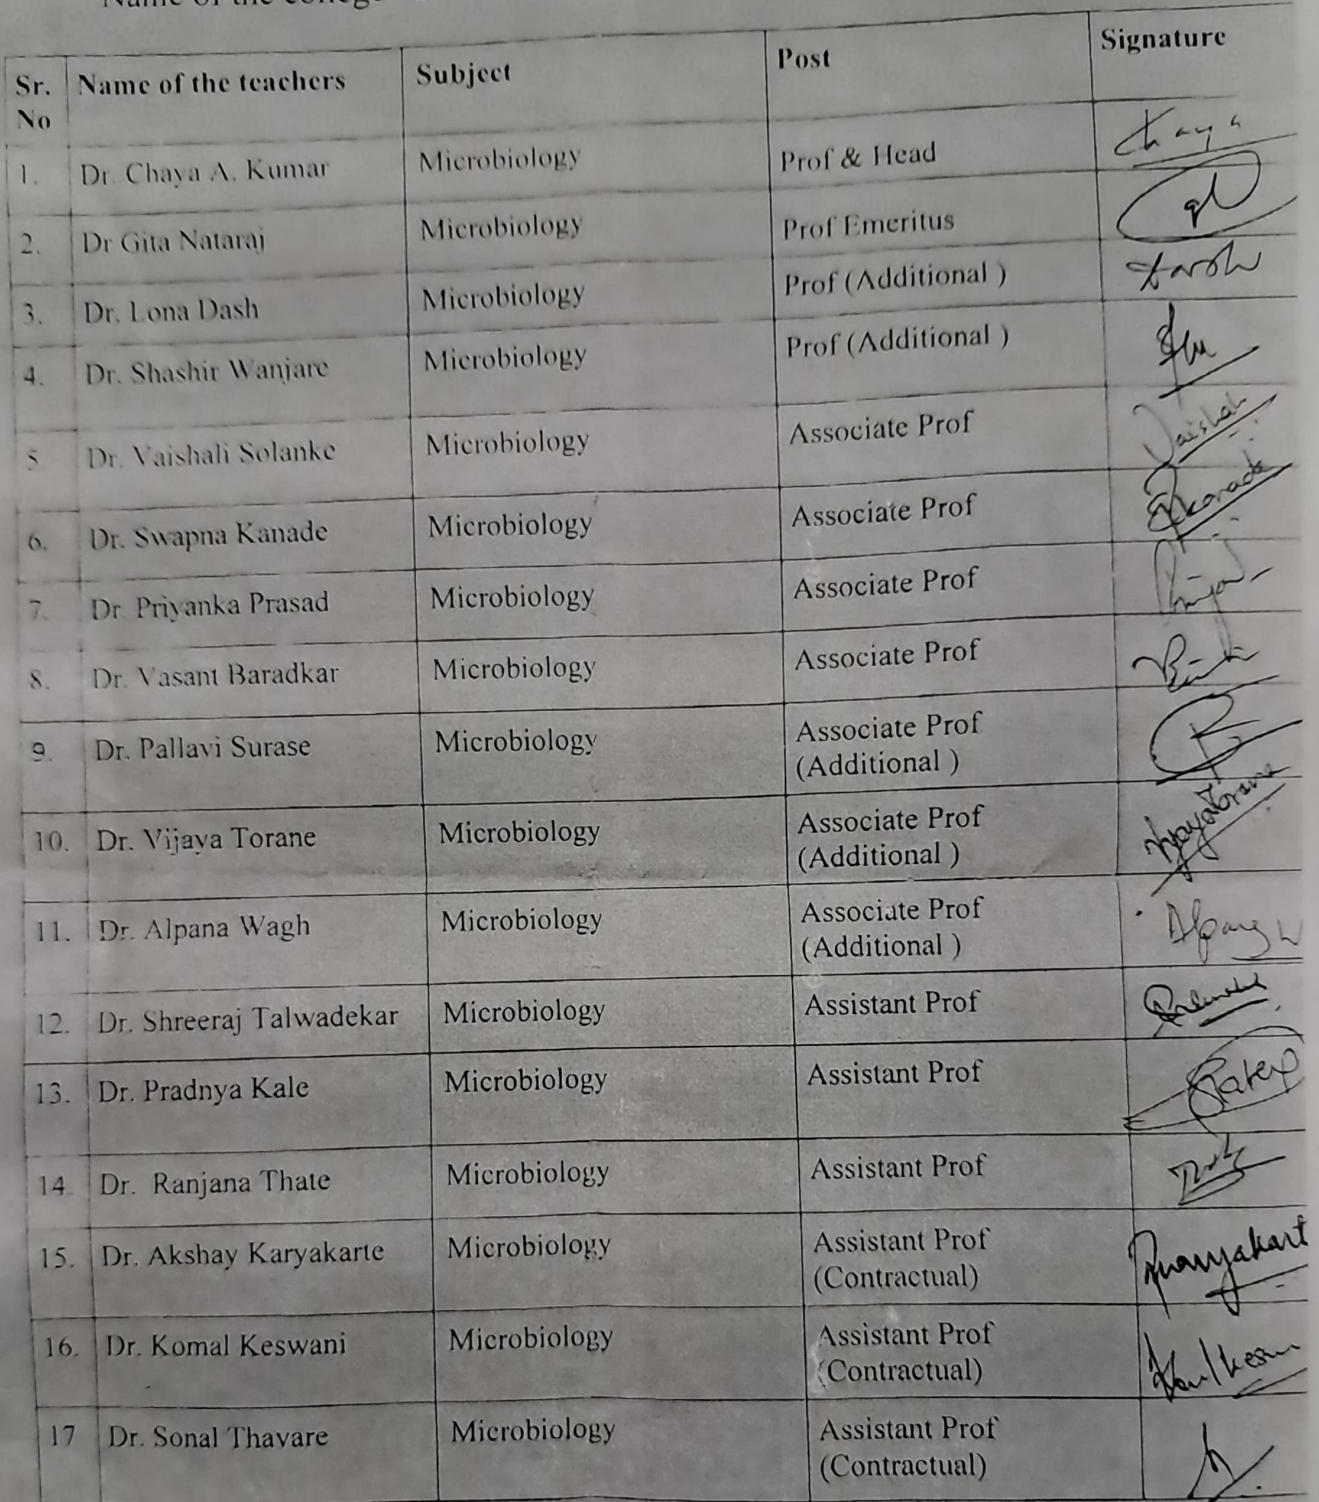 Name of the college
Sr. No Name of the teachers Subject Post Signature
1. Dr. Chaya A. Kumar Microbiology Prof & Head Chaya
2. Dr Gita Nataraj Microbiology Prof Emeritus
3. Dr. Lona Dash Microbiology Prof (Additional )
4. Dr. Shashir Wanjare Microbiology Prof (Additional )
5 Dr. Vaishali Solanke Microbiology Associate Prof Vaishali
6. Dr. Swapna Kanade Microbiology Associate Prof Skanade
7. Dr. Priyanka Prasad Microbiology Associate Prof
8. Dr. Vasant Baradkar Microbiology Associate Prof
9. Dr. Pallavi Surase Microbiology Associate Prof (Additional )
10. Dr. Vijaya Torane Microbiology Associate Prof (Additional ) VijayaTorane
11. Dr. Alpana Wagh Microbiology Associate Prof (Additional ) Alpana W
12. Dr. Shreeraj Talwadekar Microbiology Assistant Prof
13. Dr. Pradnya Kale Microbiology Assistant Prof
14. Dr. Ranjana Thate Microbiology Assistant Prof
15. Dr. Akshay Karyakarte Microbiology Assistant Prof (Contractual)
16. Dr. Komal Keswani Microbiology Assistant Prof (Contractual)
17 Dr. Sonal Thavare Microbiology Assistant Prof (Contractual)